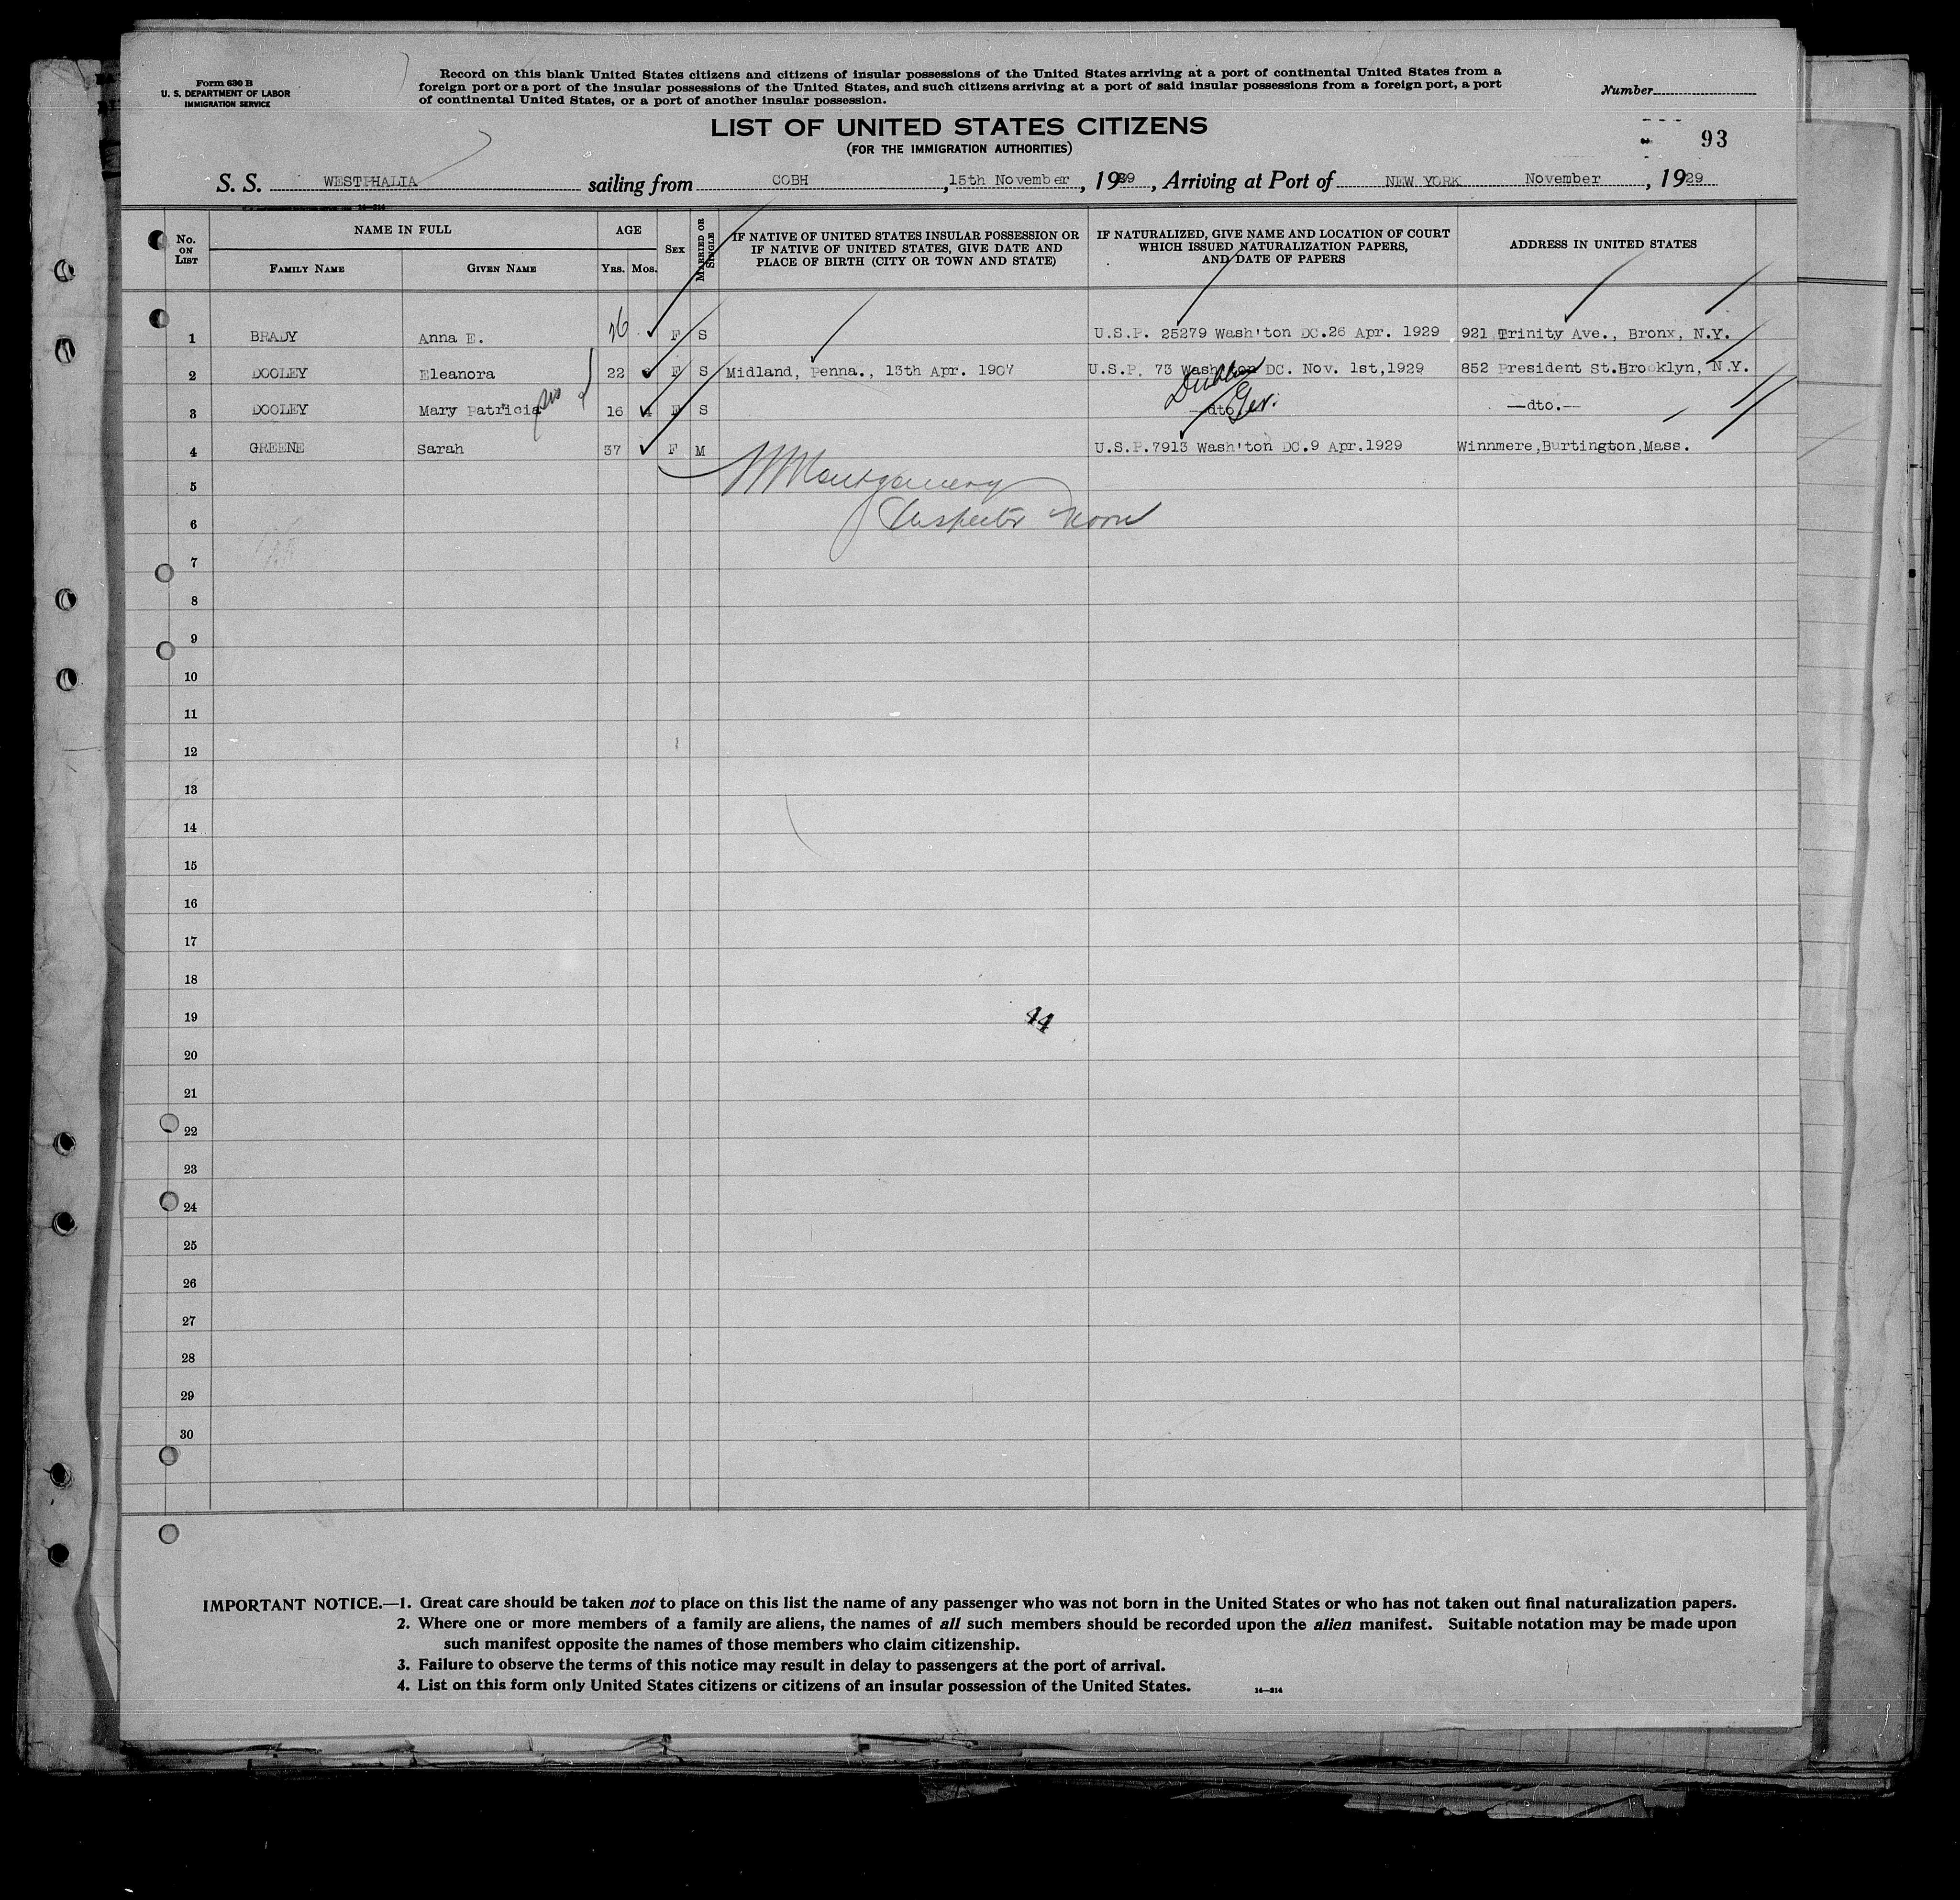 Form 630 B
U. S. DEPARTMENT OF LABOR
IMMIGRATION SERVICE
Record on this blank United States citizens and citizens of insular possessions of the United States arriving at a port of continental United States from a
foreign port or a port of the insular possessions of the United States, and such citizens arriving at a port of said insular possessions from a foreign port, a port
of continental United States, or a port of another insular possession.
Number
LIST OF UNITED STATES CITIZENS
(FOR THE IMMIGRATION AUTHORITIES)
93
S. S. WESTPHALIA sailing from COBH, 15th November, 1929, Arriving at Port of NEW YORK November, 1929
No. ON LIST
NAME IN FULL
FAMILY NAME
GIVEN NAME
AGE
YRS. MOS.
SEX
MARRIED OR SINGLE
IF NATIVE OF UNITED STATES INSULAR POSSESSION OR
IF NATIVE OF UNITED STATES, GIVE DATE AND
PLACE OF BIRTH (CITY OR TOWN AND STATE)
IF NATURALIZED, GIVE NAME AND LOCATION OF COURT
WHICH ISSUED NATURALIZATION PAPERS,
AND DATE OF PAPERS
ADDRESS IN UNITED STATES
1 BRADY Anna E. F S U.S.P. 25279 Wash'ton DC.26 Apr. 1929 921 Trinity Ave., Bronx, N.Y.
2 DOOLEY Eleanora 22 F S Midland, Penna., 13th Apr. 1907 U.S.P. 73 Wash'ton DC. Nov. 1st,1929 852 President St.Brooklyn, N.Y.
Dublin
3 DOOLEY Mary Patricia sis 16 4 F S —dto —dto.—
4 GREENE Sarah 37 F M U.S.P.7913 Wash'ton DC.9 Apr.1929 Winnmere,Burtington,Mass.
Montgomery
5
Inspector
6
7
8
9
10
11
12
13
14
15
16
17
18
19
44
20
21
22
23
24
25
26
27
28
29
30
IMPORTANT NOTICE.—1. Great care should be taken not to place on this list the name of any passenger who was not born in the United States or who has not taken out final naturalization papers.
2. Where one or more members of a family are aliens, the names of all such members should be recorded upon the alien manifest. Suitable notation may be made upon
such manifest opposite the names of those members who claim citizenship.
3. Failure to observe the terms of this notice may result in delay to passengers at the port of arrival.
4. List on this form only United States citizens or citizens of an insular possession of the United States.
14—214